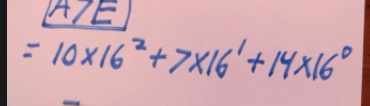 A7E
= 10×16² + 7×16¹ + 14×16⁰